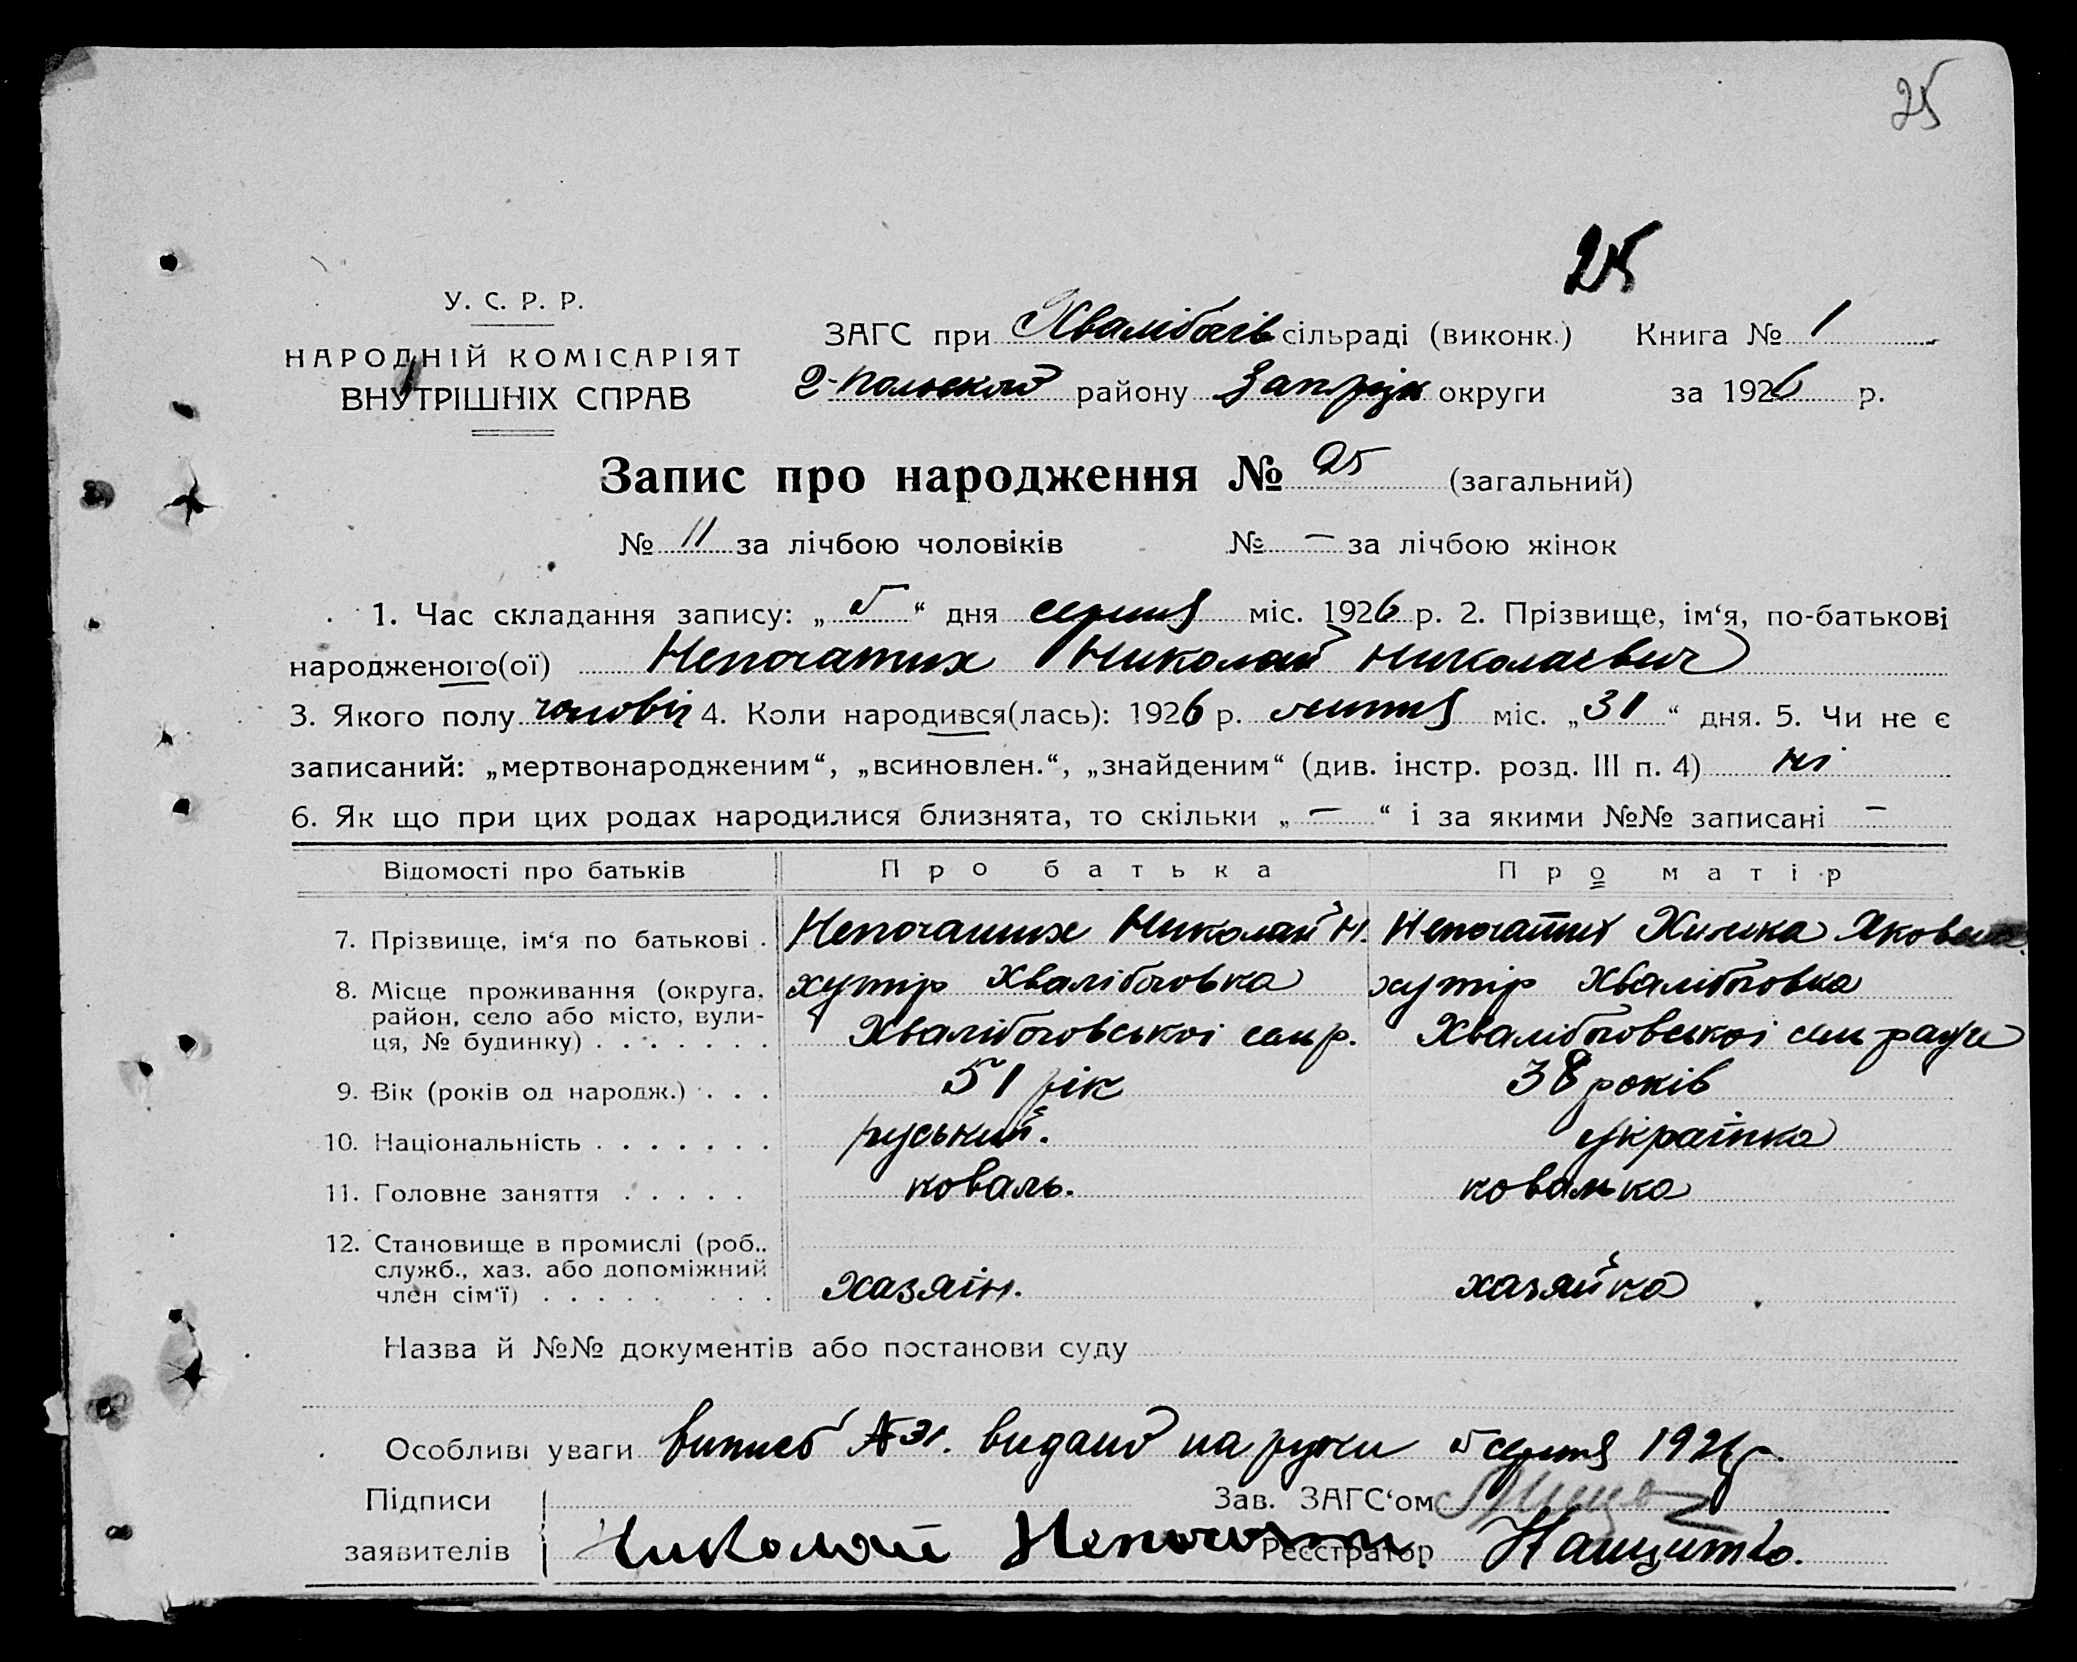 25
25
У. С. Р. Р.
НАРОДНІЙ КОМІСАРІЯТ
ВНУТРІШНІХ СПРАВ
ЗАГС при Хвалібогів сільраді (виконк.) Книга № 1
2-Польской району Запріж округи за 1926 р.
Запис про народження № 25 (загальний)
№ 11 за лічбою чоловіків № — за лічбою жінок
1. Час складання запису: „ 5 “ дня серпня міс. 1926 р. 2. Прізвище, ім‘я, по-батькові
народженого(ої) Непочатих Николай Николаевич
3. Якого полу чоловіч 4. Коли народився(лась): 1926 р. липня міс. „ 31 “ дня. 5. Чи не є
записаний: „мертвонародженим“, „всиновлен.“, „знайденим“ (див. інстр. розд. III п. 4) ні
6. Як що при цих родах народилися близнята, то скільки „ — “ і за якими №№ записані —
Відомості про батьків Про батька Про матір
7. Прізвище, ім‘я по батькові . Непочатих Николай Н. Непочатих Яковл
8. Місце проживання (округа, хутір Хвалібоговка хутір Хвалібоговка
район, село або місто, вули-
ця, № будинку) . . . . . . . Хвалібоговської сель р. Хвалібоговської сель ради
9. Вік (років од народж.) . . . 51 рік 38 років
10. Національність . . . . . . . руський. українка
11. Головне заняття . . . . . коваль. ковалька
12. Становище в промислі (роб.,
служб., хаз. або допоміжний
член сім‘ї) . . . . . . . . хазяін. хазяйка
Назва й №№ документів або постанови суду
Особливі уваги випись № 31. видано на руки 5 серпня 1926 р.
Підписи Зав. ЗАГС‘ом
заявителів Николай Непочати Реєстратор